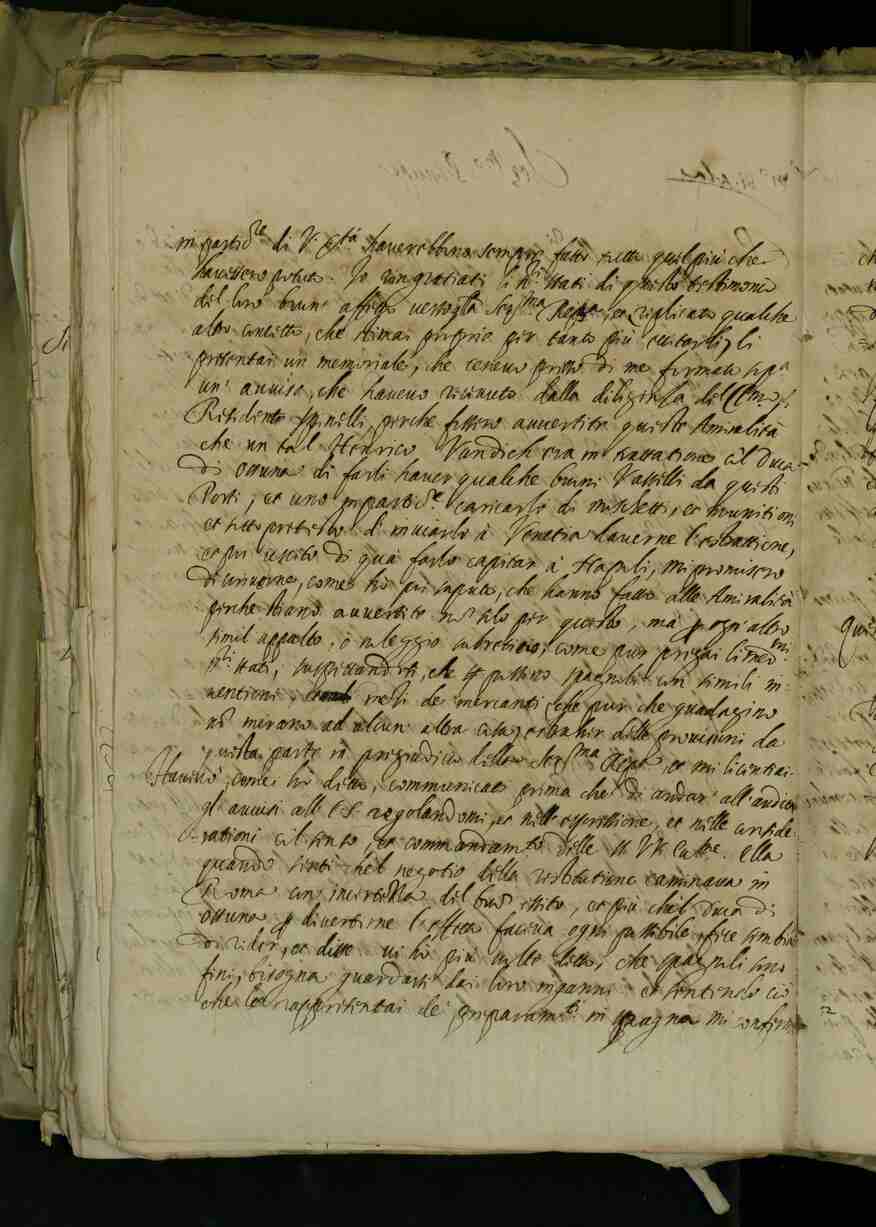 in partic.re di V. Ser.tà haverebbono sempre fatto tutto quel più che
havessero potuto. Io ringratiati li S.ri Stati di questo testimonio
del loro buon affetto verso la Ser.ma Rep.ca, et replicato qualche
altro concetto, che stimai proprio per tanto più eccitarli gli
presentai un memoriale, che tenevo presso di me formato sop.a
un' avviso, che havevo ricevuto dalla diligenza del Cl.mo S.r
Residente Spinelli, perche fossero avvertite queste Amiralità
che un tal Henrico Vandich era in trattatione col Duca
di Ossuna di farli haver qualche buoni Vasselli da questi
Porti, et uno in partic.re caricarsi di moschetti, et munitioni
et sotto pretesto d' inviarlo à Venetia haverne l'estrattione,
et poi uscito di quà farlo capitar à Napoli, mi promisero
di scriverne, come hò poi saputo, che hanno fatto alle Amiralità
perche stiano avvertite nõ solo per questo, mà p ogn' altro
simil appalto, ò noleggio subretitio, come pur pregai li med.mi
S.ri Stati, suggettandosi, che p possino Spagnoli con simili in-
ventioni, nesti de mercanti, che pur che guadagnino
nõ mirano ad alcun' altra cosa, estrahir delle provisioni da
questa parte in pregiudicio della Ser.ma Rep.ca et mi licentiai.
Havevo, come hò detto, communicato prima che di andar all' audien.a
gl' avvisi all' E.S. regolandomi, et nell' espressione, et nelle conside-
rationi col senso, et commandam.to delle SS. VV. Ecc.me. Ella
quando sentì ch'el negotio della restitutione caminava in
Roma con incertezza del buon essito, et più ch'el Duca di
Ossuna p divertirne l'effetto faceva ogni possibile, fece sembian.te
di rider, et disse vi hò più volte detto, che Spagnoli sono
fini, bisogna guardarsi dai loro inganni et sentendo ciò
che le rappresentai de' preparam.ti in Spagna mi confirmò